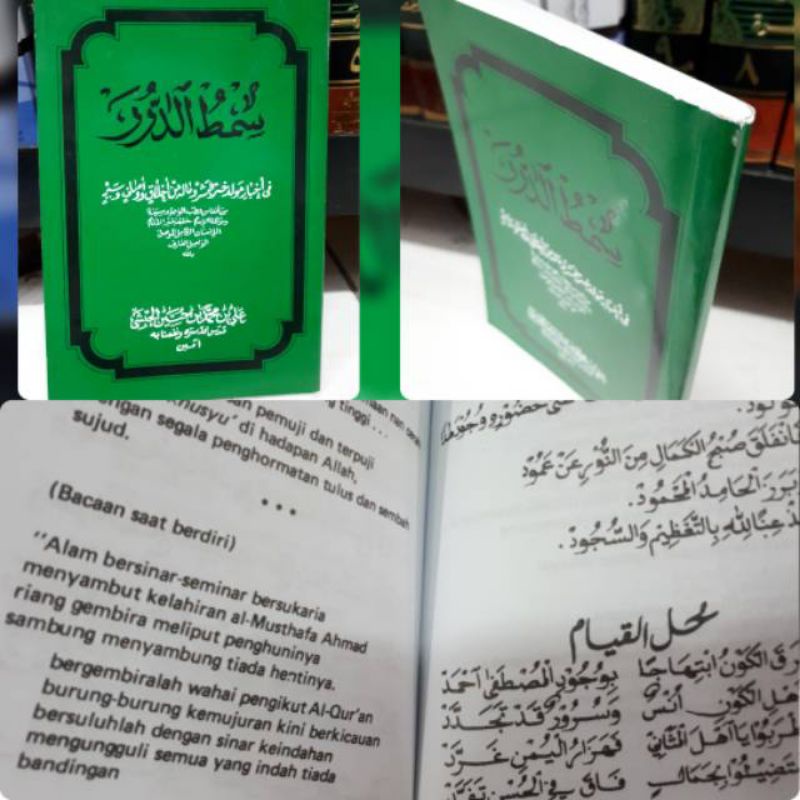 سِمْطُ الدُّرَرِ
في أخبار مولد خير البشر وماله من أخلاق وأوصاف وسير
الإنسان
الواصل العارف
بالله
علي بن محمد بن حسين الحبشي
آمين
سمط الدرر
pemuji dan terpuji
"khusyu" di hadapan Allah,
dengan segala penghormatan tulus dan sembah
sujud.
(Bacaan saat berdiri)
"Alam bersinar-seminar bersukaria
menyambut kelahiran al-Musthafa Ahmad
riang gembira meliput penghuninya
sambung menyambung tiada hentinya.
bergembiralah wahai pengikut Al-Qur'an
burung-burung kemujuran kini berkicauan
bersuluhlah dengan sinar keindahan
mengungguli semua yang indah tiada
bandingan
حُضُوْرِهِ وَجُوْدِهِ
فَانْفَلَقَ صُبْحُ الْكَمَالِ مِنَ النُّوْرِ عَنْ عَمُوْدٍ
بَرَزَ الْحَامِدُ الْمَحْمُوْدُ.
مُذْعِنًا لِلّٰهِ بِالتَّعْظِيْمِ وَالسُّجُوْدِ.
محل القيام
الْكَوْنُ ابْتِهَاجًا بِوُجُوْدِ الْمُصْطَفٰى أَحْمَدْ
الْكَوْنِ أُنْسٌ وَسُرُوْرٌ قَدْ تَجَدَّدْ
يَا أَهْلَ الْمَثَانِيْ فَهَزَارُ الْيُمْنِ غَرَّدْ
بِجَمَالٍ فَاقَ فِي الْحُسْنِ تَفَرَّدْ